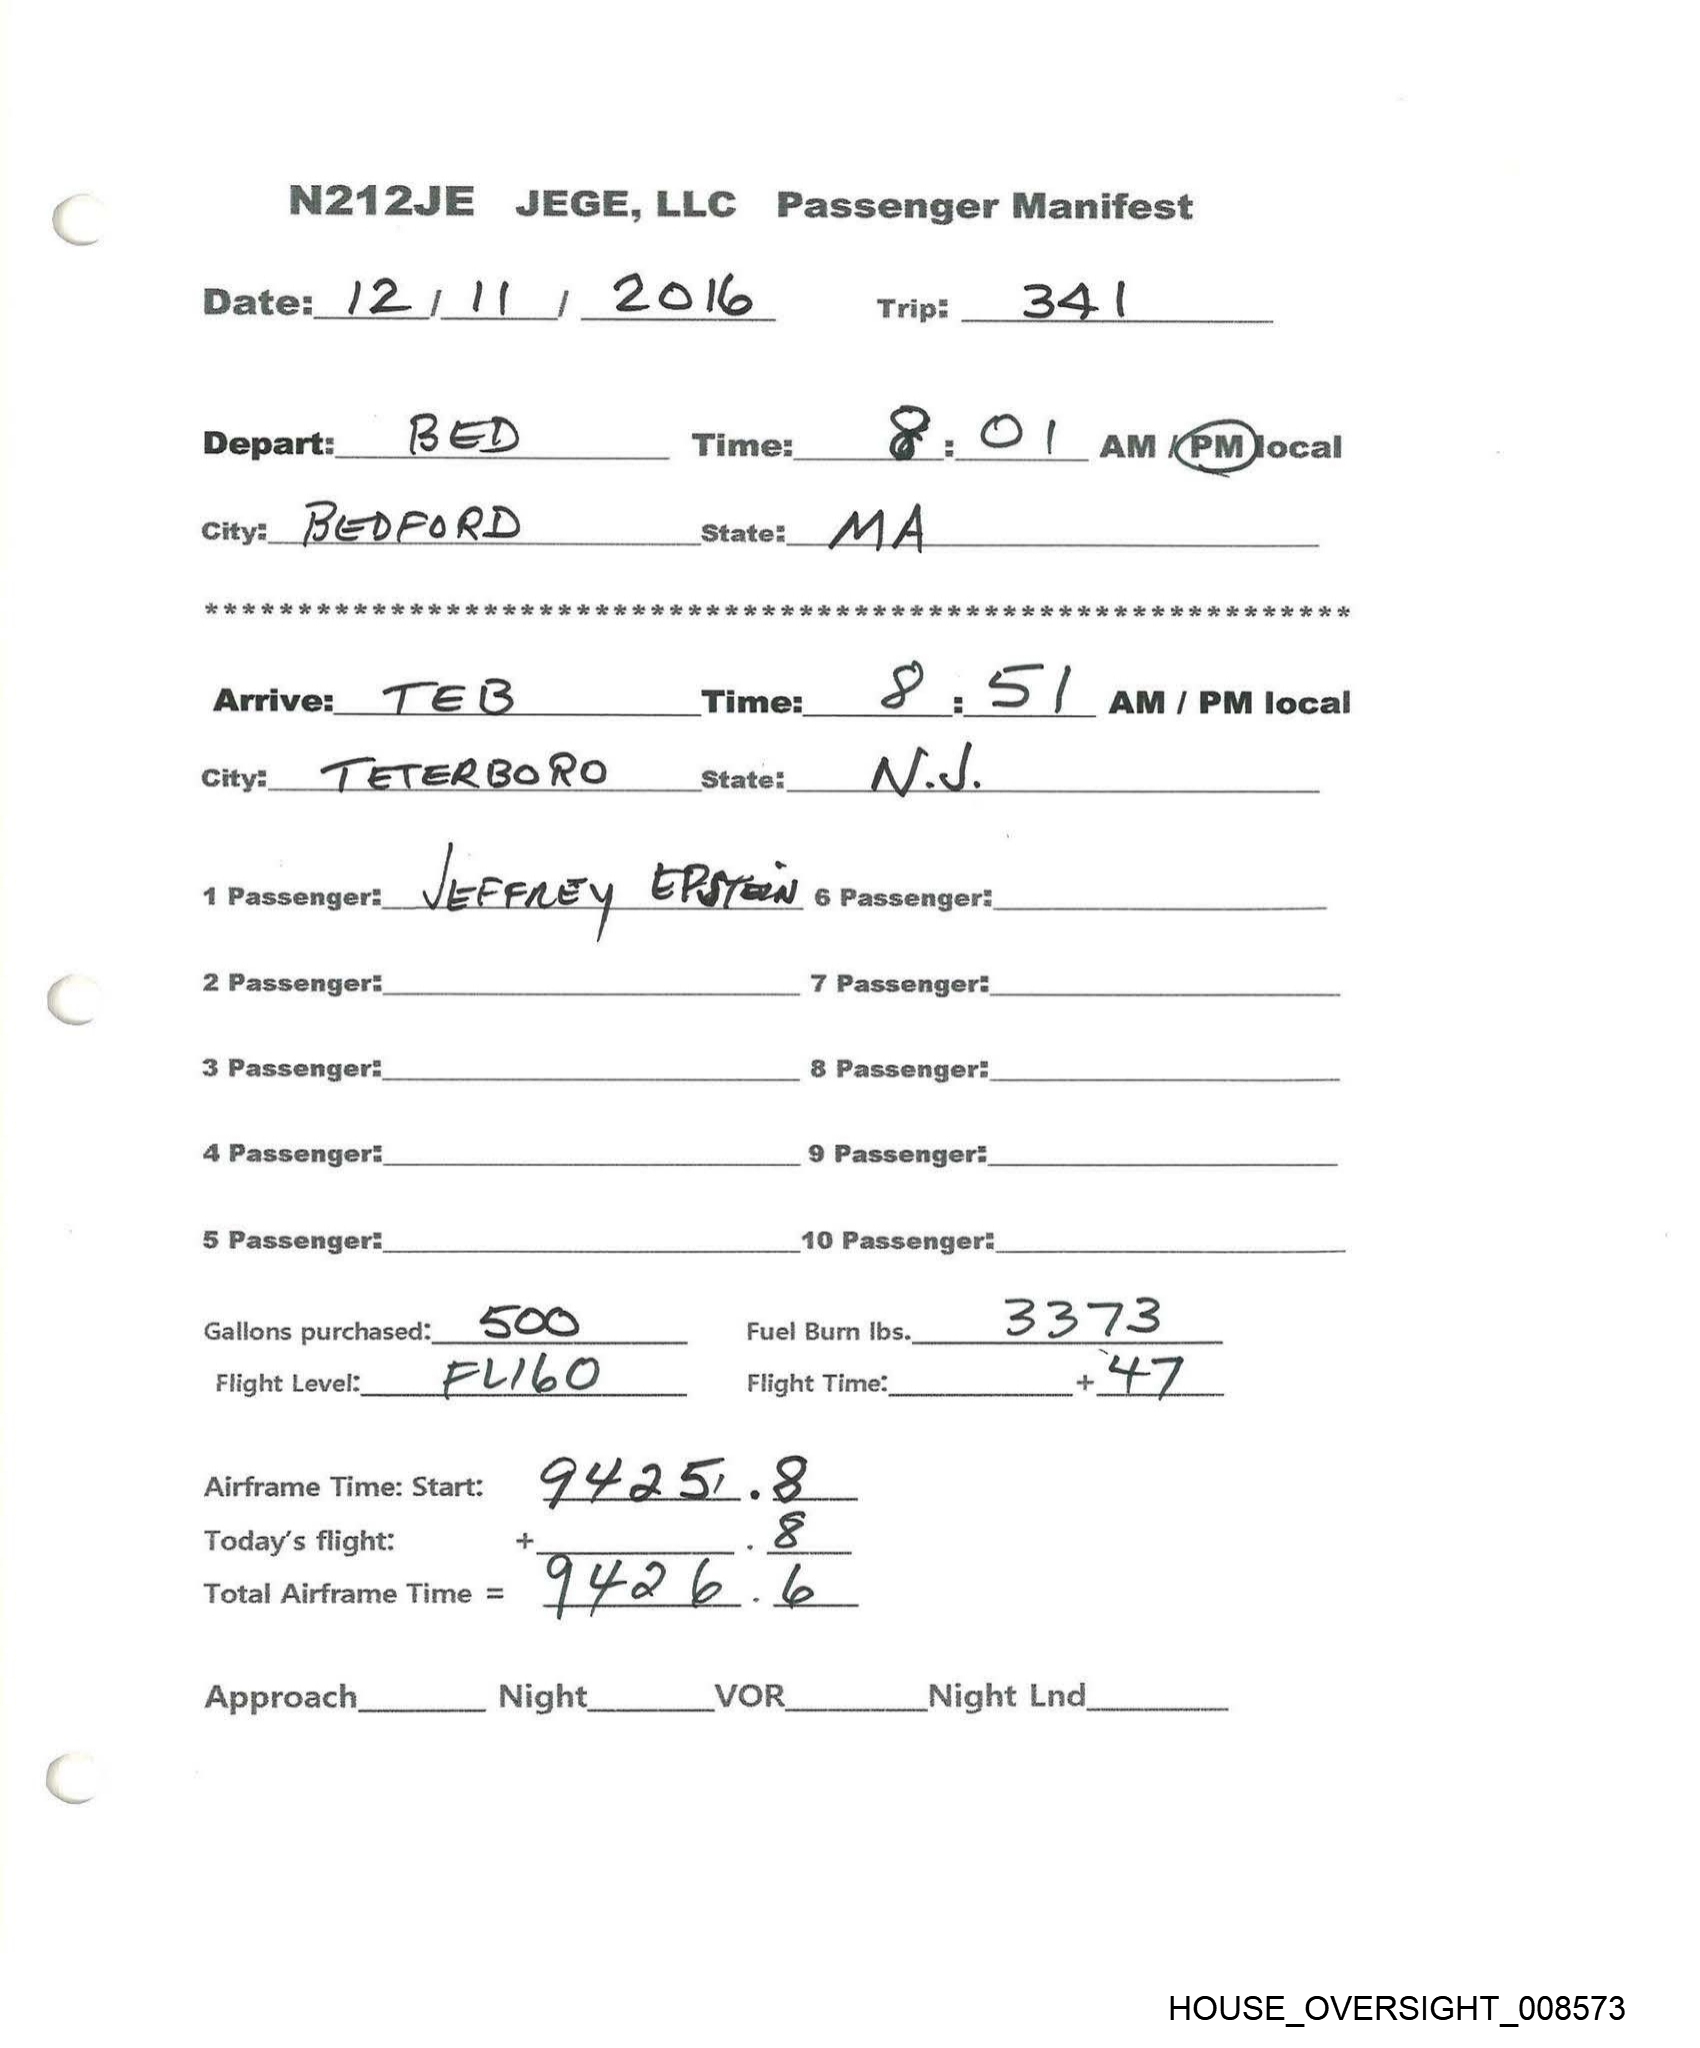 N212JE JEGE, LLC Passenger Manifest
Date: 12 / 11 / 2016 Trip: 341
Depart: BED Time: 8 : 01 AM / PM local
City: BEDFORD State: MA
**************************************************************
Arrive: TEB Time: 8 : 51 AM / PM local
City: TETERBORO State: N.J.
1 Passenger: JEFFREY EPSTEIN 6 Passenger:
2 Passenger: 7 Passenger:
3 Passenger: 8 Passenger:
4 Passenger: 9 Passenger:
5 Passenger: 10 Passenger:
Gallons purchased: 500 Fuel Burn lbs. 3373
Flight Level: FL160 Flight Time: + 47
Airframe Time: Start: 9425 . 8
Today's flight: + . 8
Total Airframe Time = 9426 . 6
Approach Night VOR Night Lnd
HOUSE_OVERSIGHT_008573